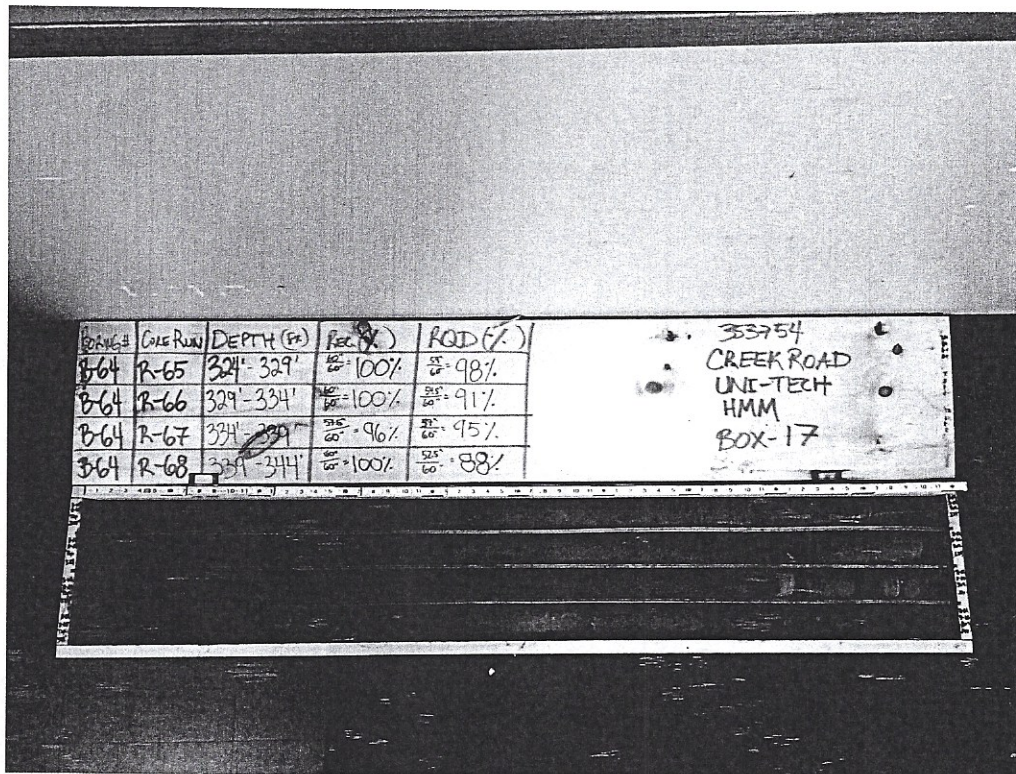 BORING# CORE RUN DEPTH (Ft) REC (%) RQD (%)
B-64 R-65 324'-329' 60"/60" = 100% = 98%
B-64 R-66 329'-334' 60"/60" = 100% = 91%
B-64 R-67 334'-339' 57.5"/60" = 96% 57"/60" = 95%
B-64 R-68 339'-344' 60"/60" = 100% 52.5"/60" = 88%
353754
CREEK ROAD
UNI-TECH
HMM
BOX-17